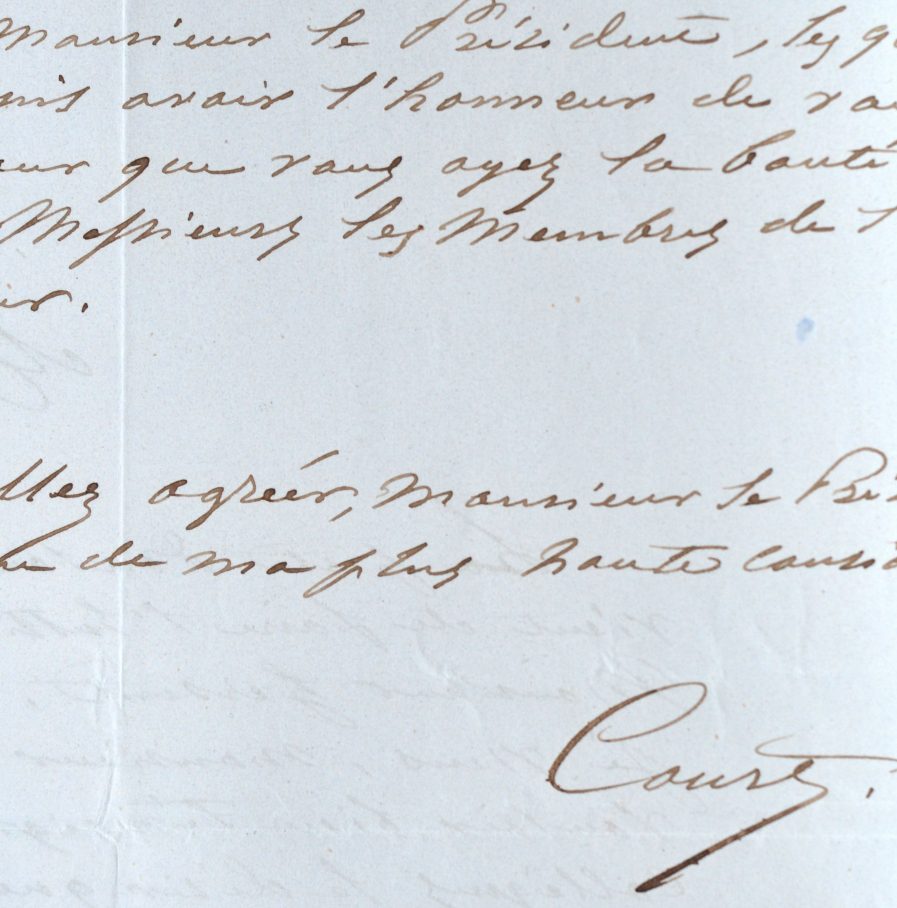 Monsieur le Président, les q
uis avoir l'honneur de vou
eur que vous ayez la bonté
Messieurs les Membres de l
ir.
llez agréer, Monsieur le Prés
de ma plus haute consid